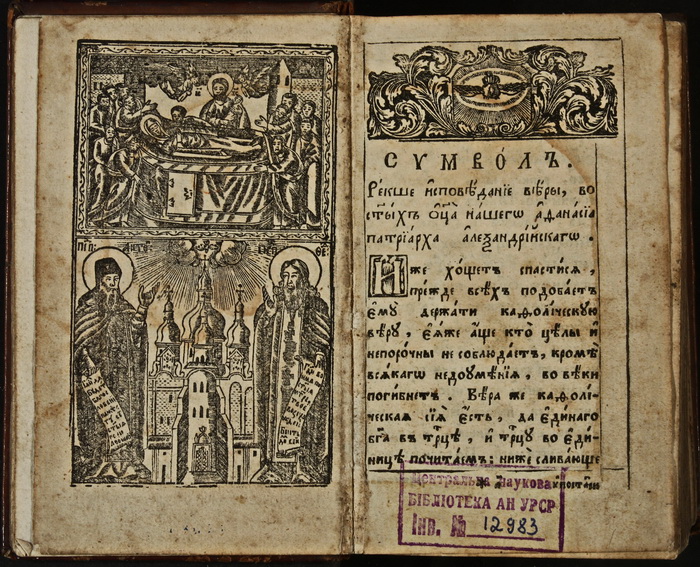 СѴМВО́ЛЪ.
Ре́кше и҆сповѣ́данїе вѣ́ры, во
ст҃ы́хъ ѻ҆ц҃а̀ на́шегѡ а҆ѳана́сїа
патрїа́рха а҆леѯандрі́йскагѡ.
И҆́же хо́щетъ спасти́сѧ,
пре́жде всѣ́хъ подоба́етъ
є҆мꙋ̀ держа́ти каѳоли́ческꙋю
вѣ́рꙋ, є҆ѧ́же а҆́ще кто̀ цѣ́лы и҆
непоро́чны не соблюда́етъ, кромѣ̀
всѧ́кагѡ недоꙋмѣ́нїѧ, во вѣ́ки
поги́бнетъ. Вѣ́ра же каѳолі́-
ческаѧ сїѧ̀ є҆́сть, да є҆ди́наго
бг҃а въ трⷪ҇цѣ, и҆ трⷪ҇цꙋ во є҆ди́-
ницѣ почита́емъ: нижѐ слива́юще
Центральна Наукова
БІБЛІОТЕКА АН УРСР
Інв. № 12983